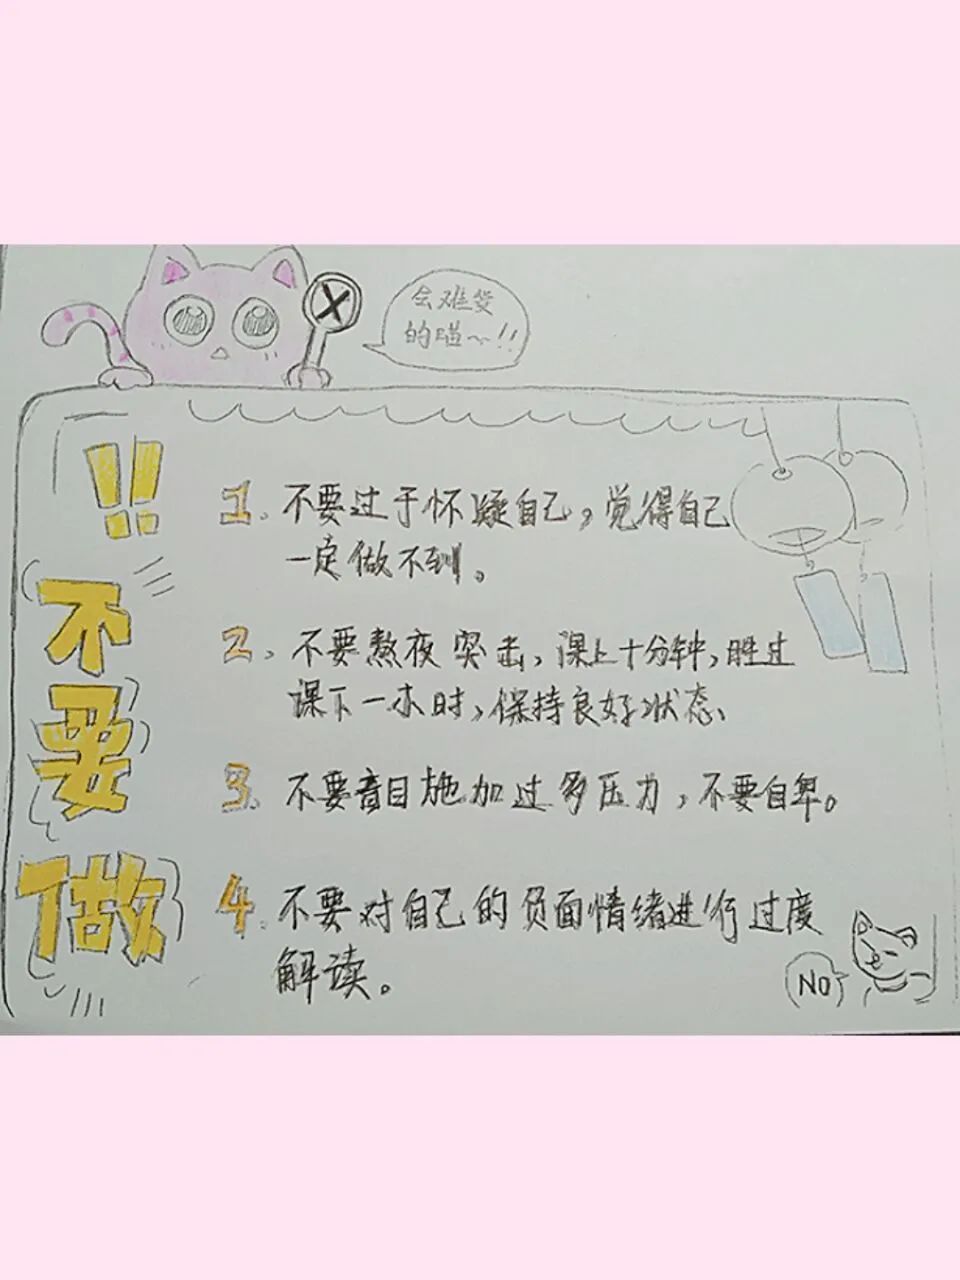 会难受
的喵~!!
!!
不要做
1. 不要过于怀疑自己，觉得自己
一定做不到。
2. 不要熬夜突击，课上十分钟，胜过
课下一小时，保持良好状态。
3. 不要盲目施加过多压力，不要自卑。
4. 不要对自己的负面情绪进行过度
解读。
NO